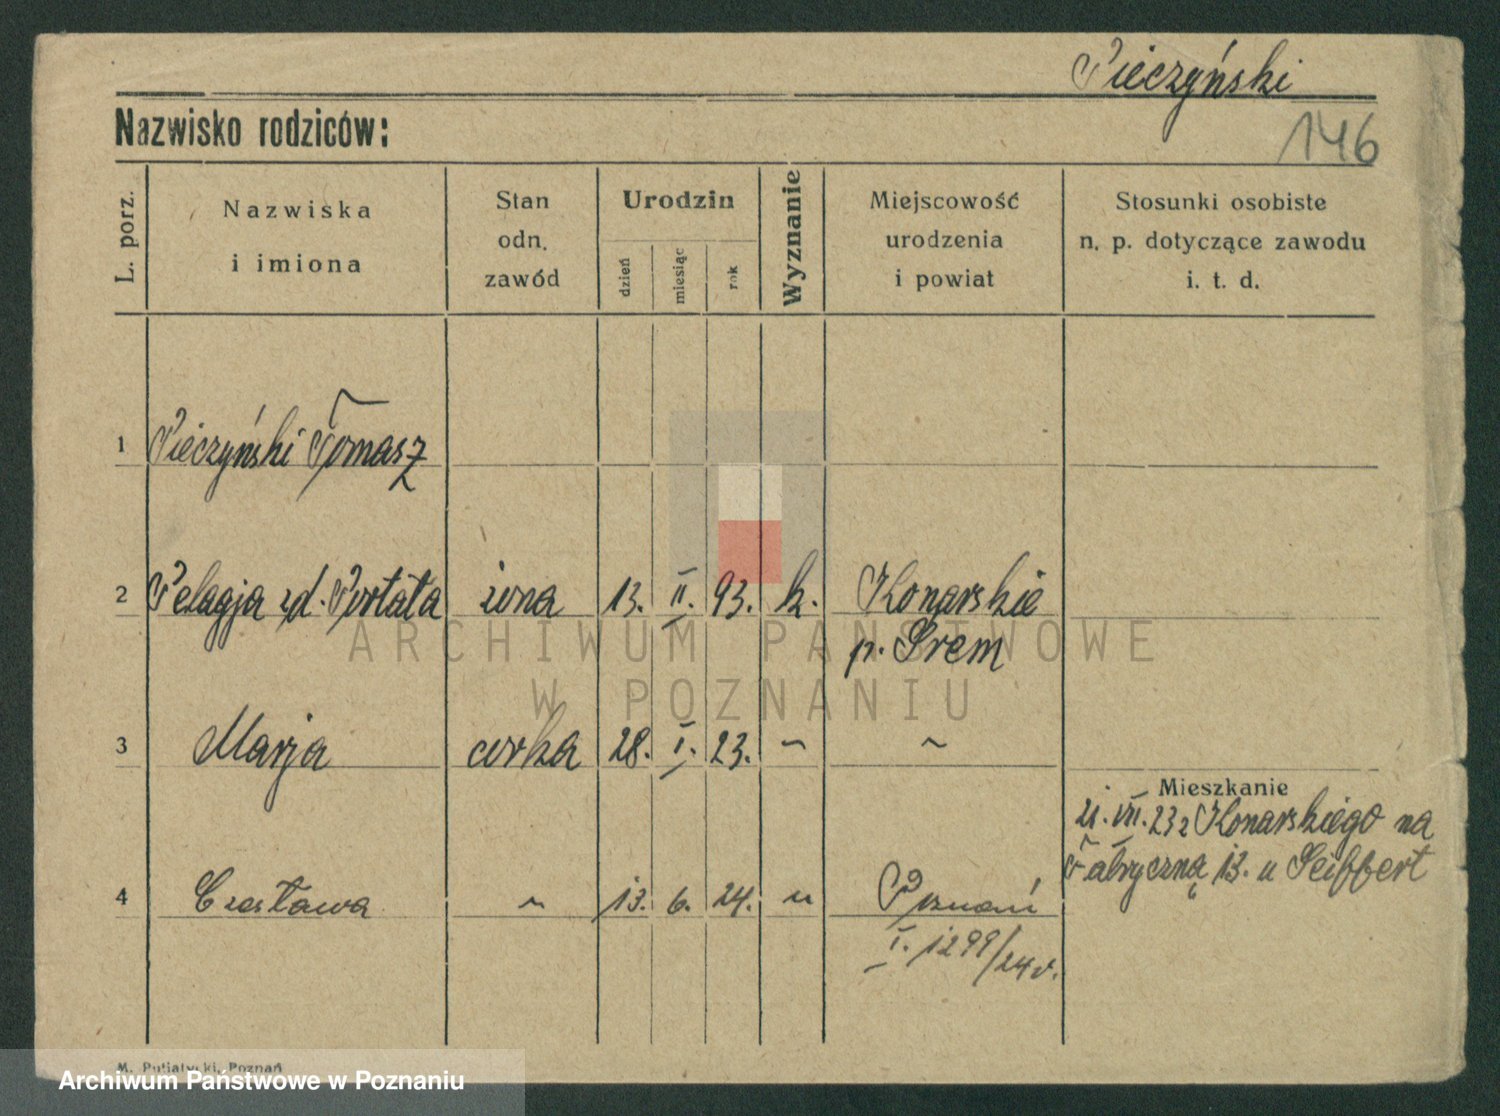 Pieczyński
Nazwisko rodziców:
146
L. porz.
Nazwiska
i imiona
Stan
odn.
zawód
Urodzin
dzień
miesiąc
rok
Wyznanie
Miejscowość
urodzenia
i powiat
Stosunki osobiste
n. p. dotyczące zawodu
i. t. d.
1 Pieczyński Tomasz
2 Pelagja zd. Portała żona 13. II. 93. k. Konarskie
p. Śrem
3 Marja córka 28. I. 23. " "
Mieszkanie
21. VII. 23 z Konarskiego na
Fabryczną 13. u Seiffert
4 Czesława " 13. 6. 24. " Poznań
I. 1299/24 r.
ARCHIWUM PAŃSTWOWE
W POZNANIU
M. Putiatycki, Poznań
Archiwum Państwowe w Poznaniu